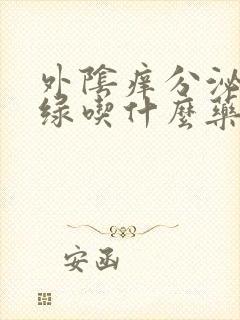 外陰痒分泌
绿喫什麼藥
安函